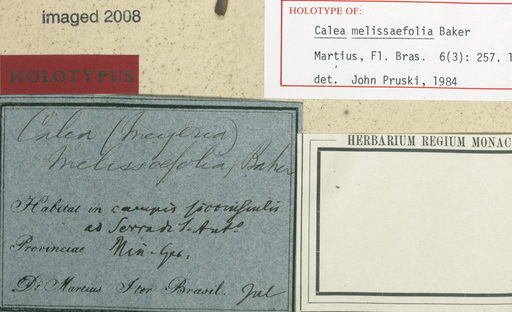 imaged 2008
HOLOTYPE OF:
Calea melissaefolia Baker
Martius, Fl. Bras. 6(3): 257.
det. John Pruski, 1984
HOLOTYPUS
Calea (Meyeria)
melissaefolia, Baker
Habitat in campis
ad Serra di S. Anto
Provinciae Min. Ger.
Dr Martius Iter Brasil. Jul
HERBARIUM REGIUM MONAC